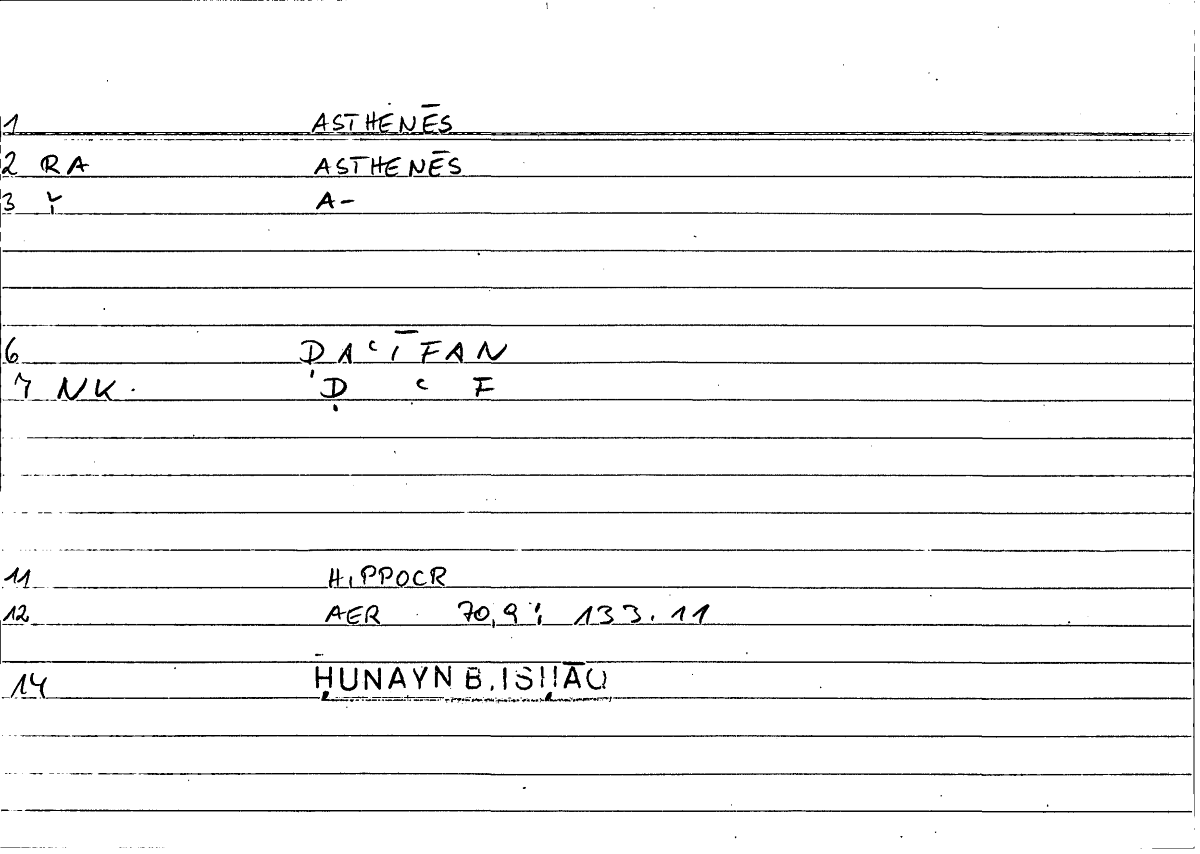 1 ASTHENĒS
2 RA ASTHENĒS
3 Y A-
6 ḌAʿĪFAN
7 NK. Ḍ ʿ F
11 HIPPOCR
12 AER 70,9 ; 133.11
14 ḤUNAYN B. ISḤĀQ